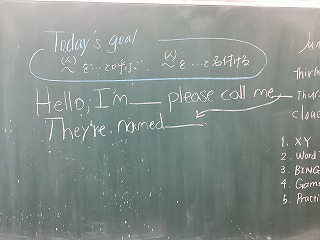 Today's goal
(人)
〜を…と呼ぶ. 〜を…と名付ける
Hello, I'm ___ please call me
They're named ___.
thirte
Thur
clou
1. XY
2. Word
3. BING
4. Game
5. Practi